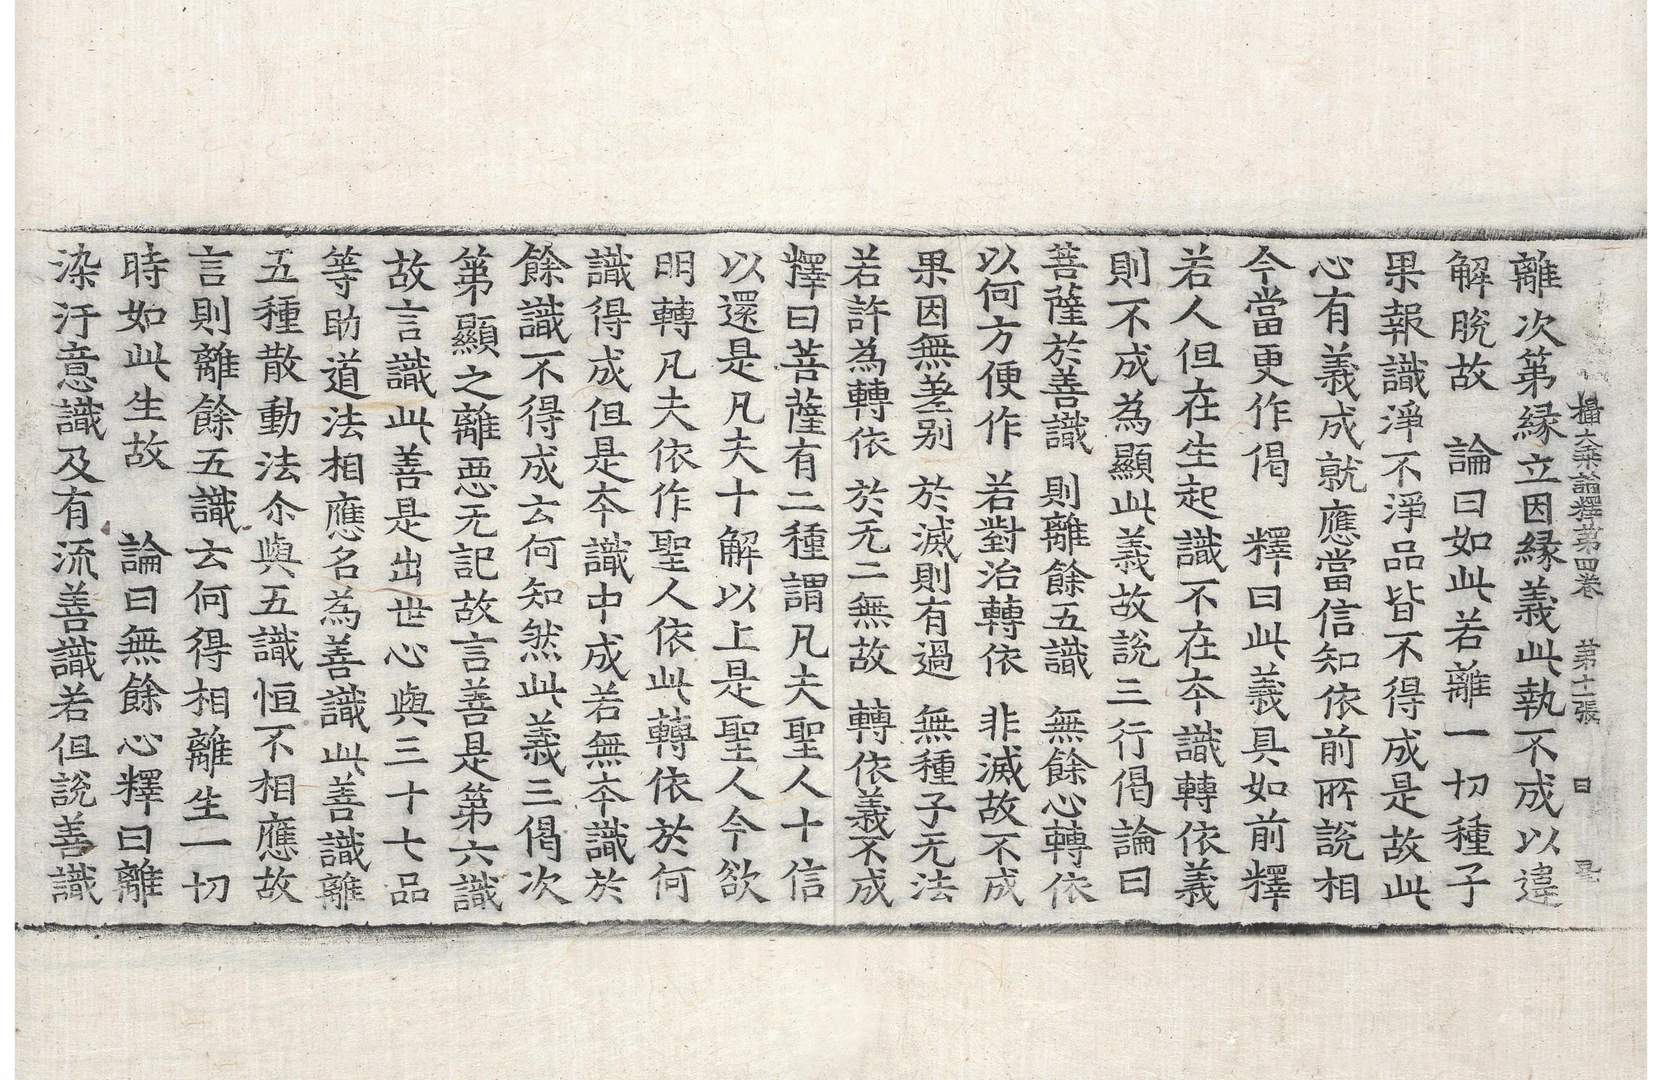 攝大乗論釋第四卷 第十一張 日
離次第縁立因縁義此執不成以違
解脫故 論曰如此若離一切種子
果報識淨不淨品皆不得成是故此
心有義成就應當信知依前所說相
今當更作偈 釋曰此義具如前釋
若人但在生起識不在夲識轉依義
則不成為顯此義故說三行偈論曰
菩薩於善識 則離餘五識 無餘心轉依
以何方便作 若對治轉依 非滅故不成
果因無差别 於滅則有過 無種子无法
若許為轉依 於无二無故 轉依義不成
釋曰菩薩有二種謂凡夫聖人十信
以還是凡夫十解以上是聖人今欲
明轉凡夫依作聖人依此轉依於何
識得成但是夲識中成若無夲識於
餘識不得成云何知然此義三偈次
第顯之離惡无記故言善是第六識
故言識此善是出世心與三十七品
等助道法相應名為善識此善識離
五種散動法尒與五識恒不相應故
言則離餘五識云何得相離生一切
時如此生故 論曰無餘心釋曰離
染汙意識及有流善識若但說善識